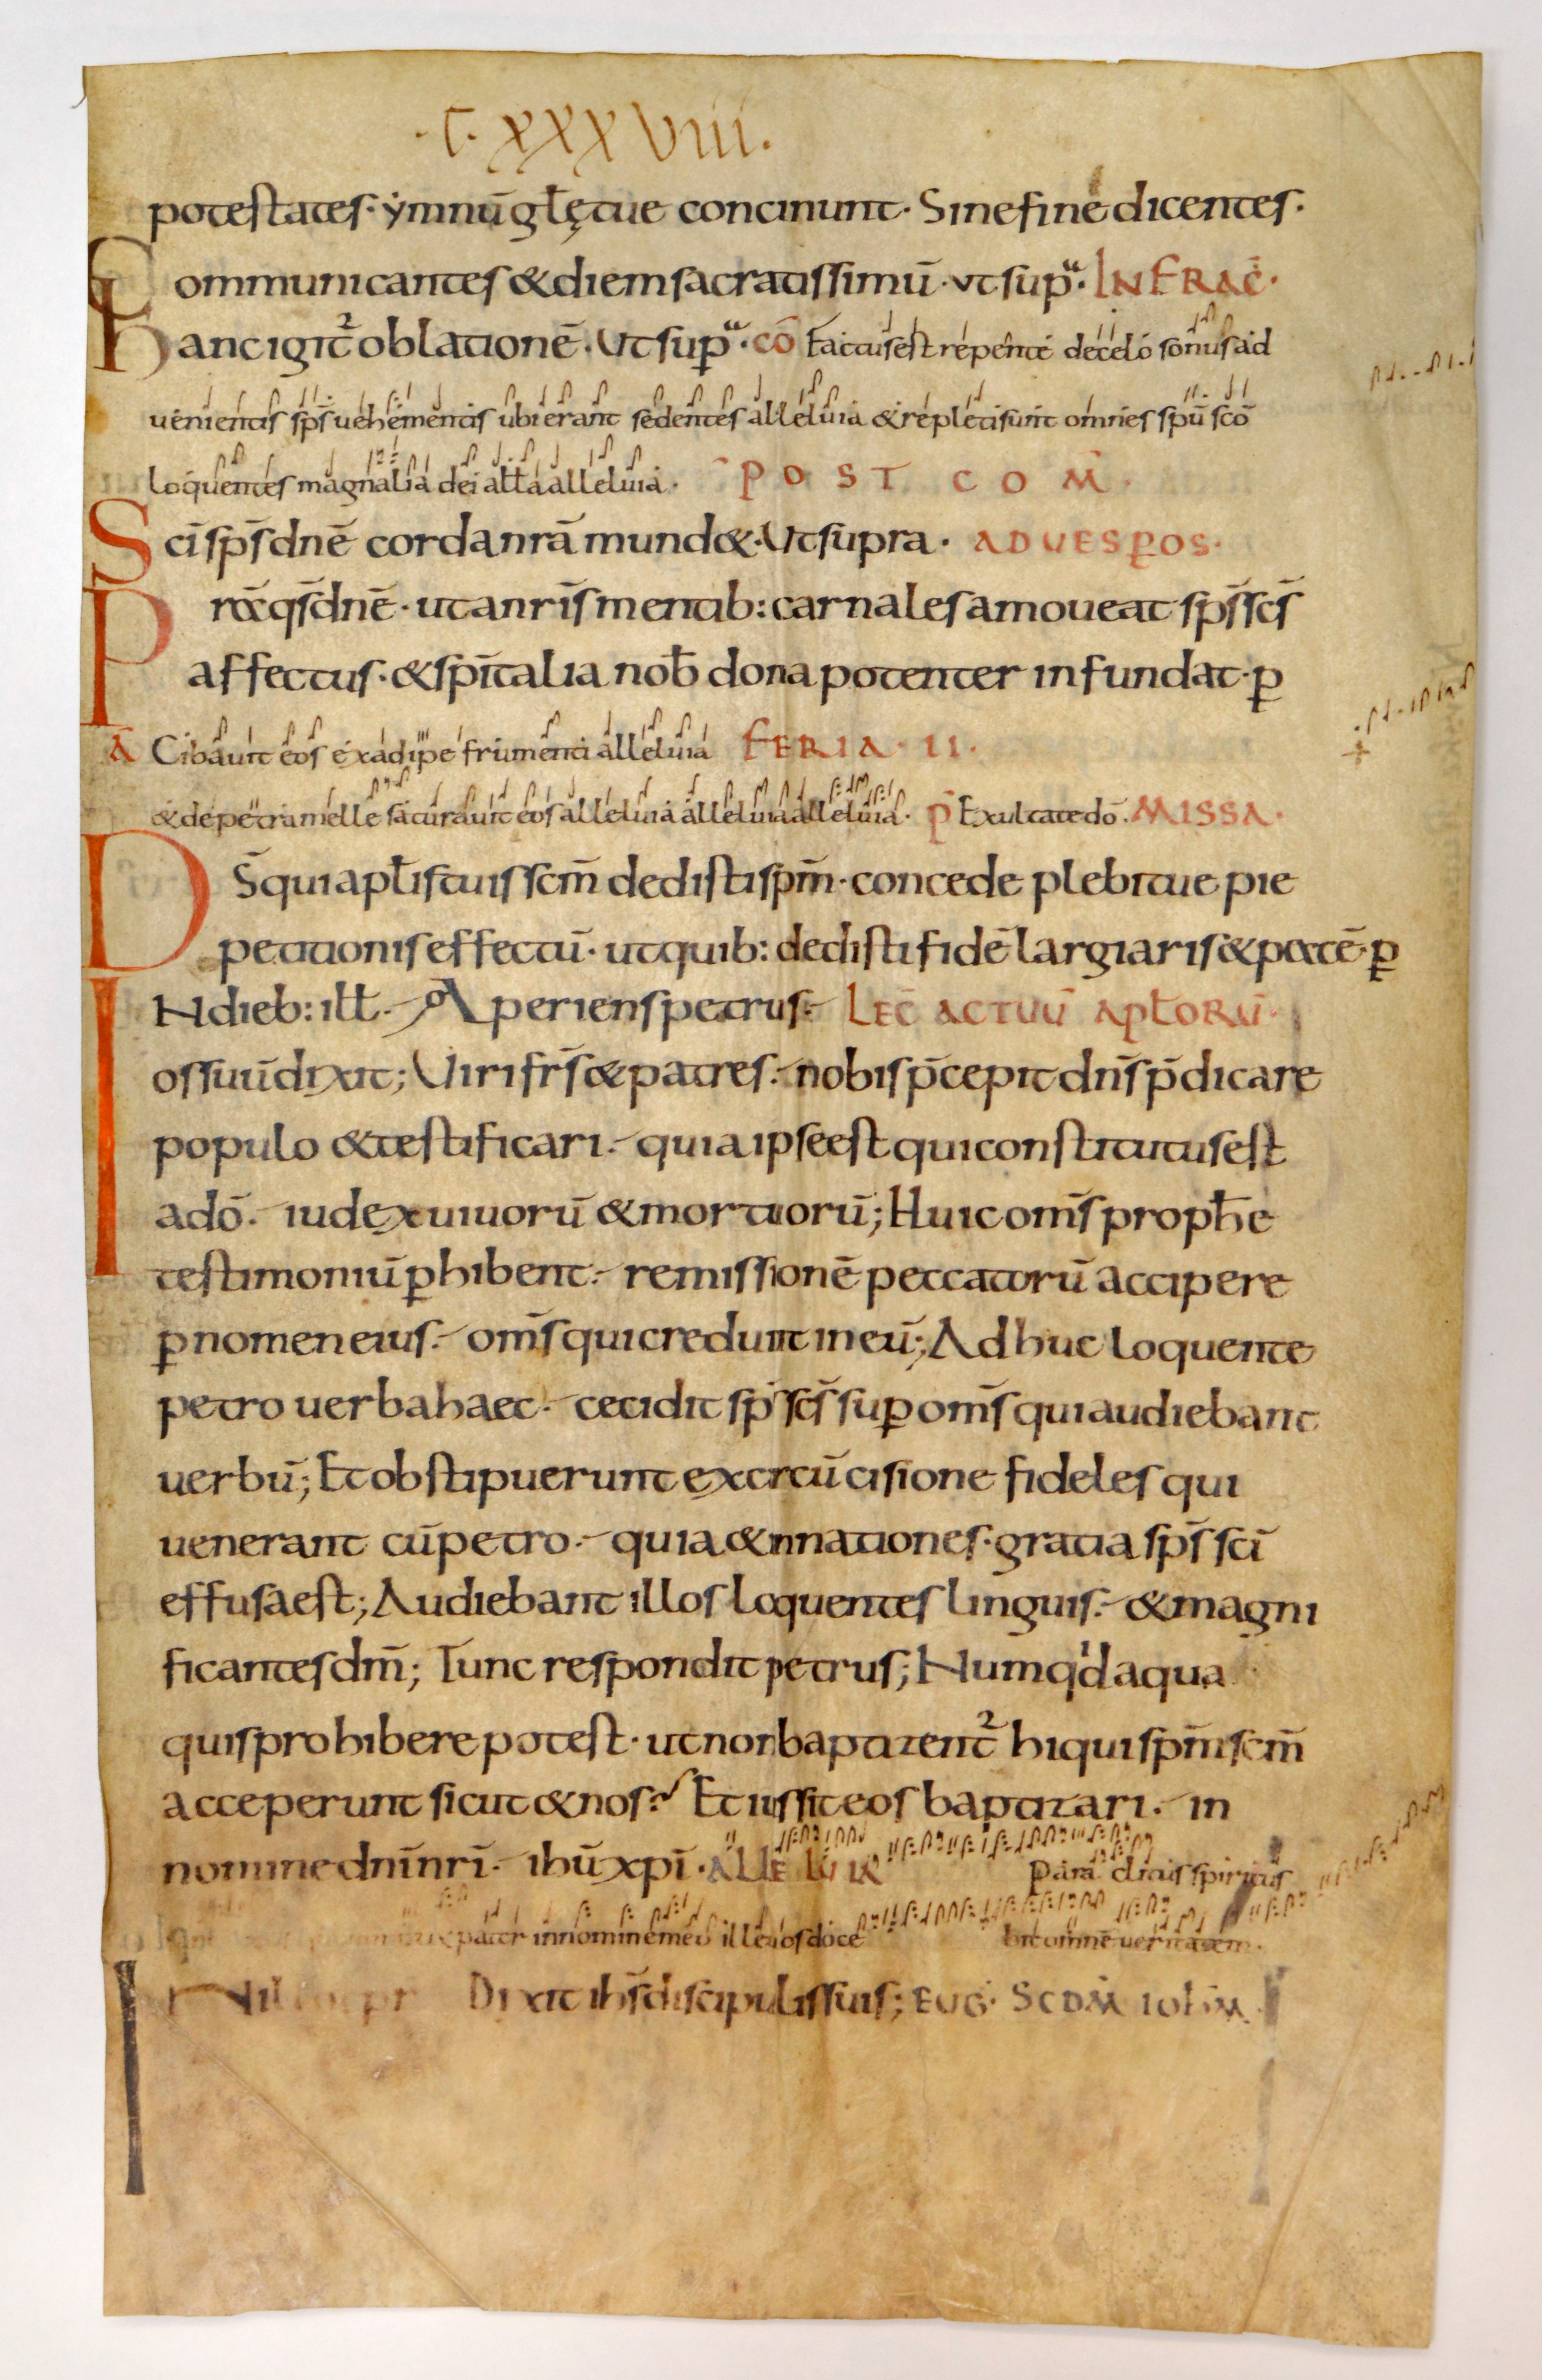 ·C·XXXVIII·
potestates· ẏmnū gl̄ę tue concinunt· Sine fine dicentes·
Communicantes & diem sacratissimū· ut sup̄ᵃ· INFRAC̄·
Hanc igit̄ oblationē· Ut sup̄ᵃ· cō Factus est repente de celo sonus ad
uenientis sp̄s uehementis ubi erant sedentes alleluia & repleti sunt omnes sp̄u scō
loquentes magnalia dei all̄a alleluia· POST COM̄·
Scī sp̄s dnē corda nr̄a mund&· Ut supra· AD UESP̄OS·
Pr&̄ qs̄ dnē· ut a nr̄is mentib: carnales amoueat sp̄s scs̄
affectus· & sp̄italia nob̄ dona potenter infundat· p̄
ā Cibauit eos ex adipe frumenti alleluia FERIA· II·
& de petra melle saturauit eos alleluia alleluia alleluia· p̄ Exultate dō· MISSA·
Ds̄ qui apl̄is tuis scm̄ dedisti spm̄· concede plebi tue pie
petitionis effectū· ut quib: dedisti fidē largiaris & pacē· p̄
IN dieb: ill̄· Aperiens petrus· LEC̄ ACTUŪ APL̄ORŪ·
os suū dixit; Uiri fr̄s & patres· nobis p̄cepit dn̄s p̄dicare
populo & testificari· quia ipse est qui constitutus est
a dō· iudex uiuorū & mortuorū; Huic om̄s proph̄e
testimoniū p̄hibent· remissionē peccatorū accipere
p̄ nomen eius· om̄s qui credunt in eū; Adhuc loquente
petro uerba haec· cecidit sp̄s scs̄ sup̄ om̄s qui audiebant
uerbū; Et obstipuerunt ex circūcisione fideles qui
uenerant cū petro· quia & in nationes· gratia sp̄s scī
effusa est; Audiebant illos loquentes linguis· & magni
ficantes dm̄; Tunc respondit petrus; Numqⁱd aqua
quis prohibere potest· ut non baptizent̄ hi qui spm̄ scm̄
acceperunt sicut & nos? Et iussit eos baptizari· in
nomine dnī nrī· ihū xpī· ALLELUIA Paraclitus spiritus
pater in nomine meo ille uos doce bit omnē ueritatem·
Dixit ihs̄ discipulis suis; EUḠ· SCDM̄ IOH̄M·